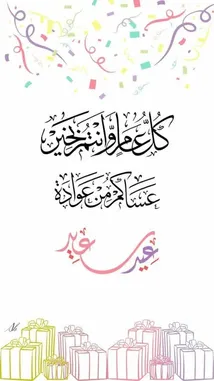 كُلُّ عَامٍ وَأَنْتُمْ بِخَيْرٍ
عَسَاكُمْ مِنْ عُوَّادَهْ
عِيدٌ سَعِيدٌ